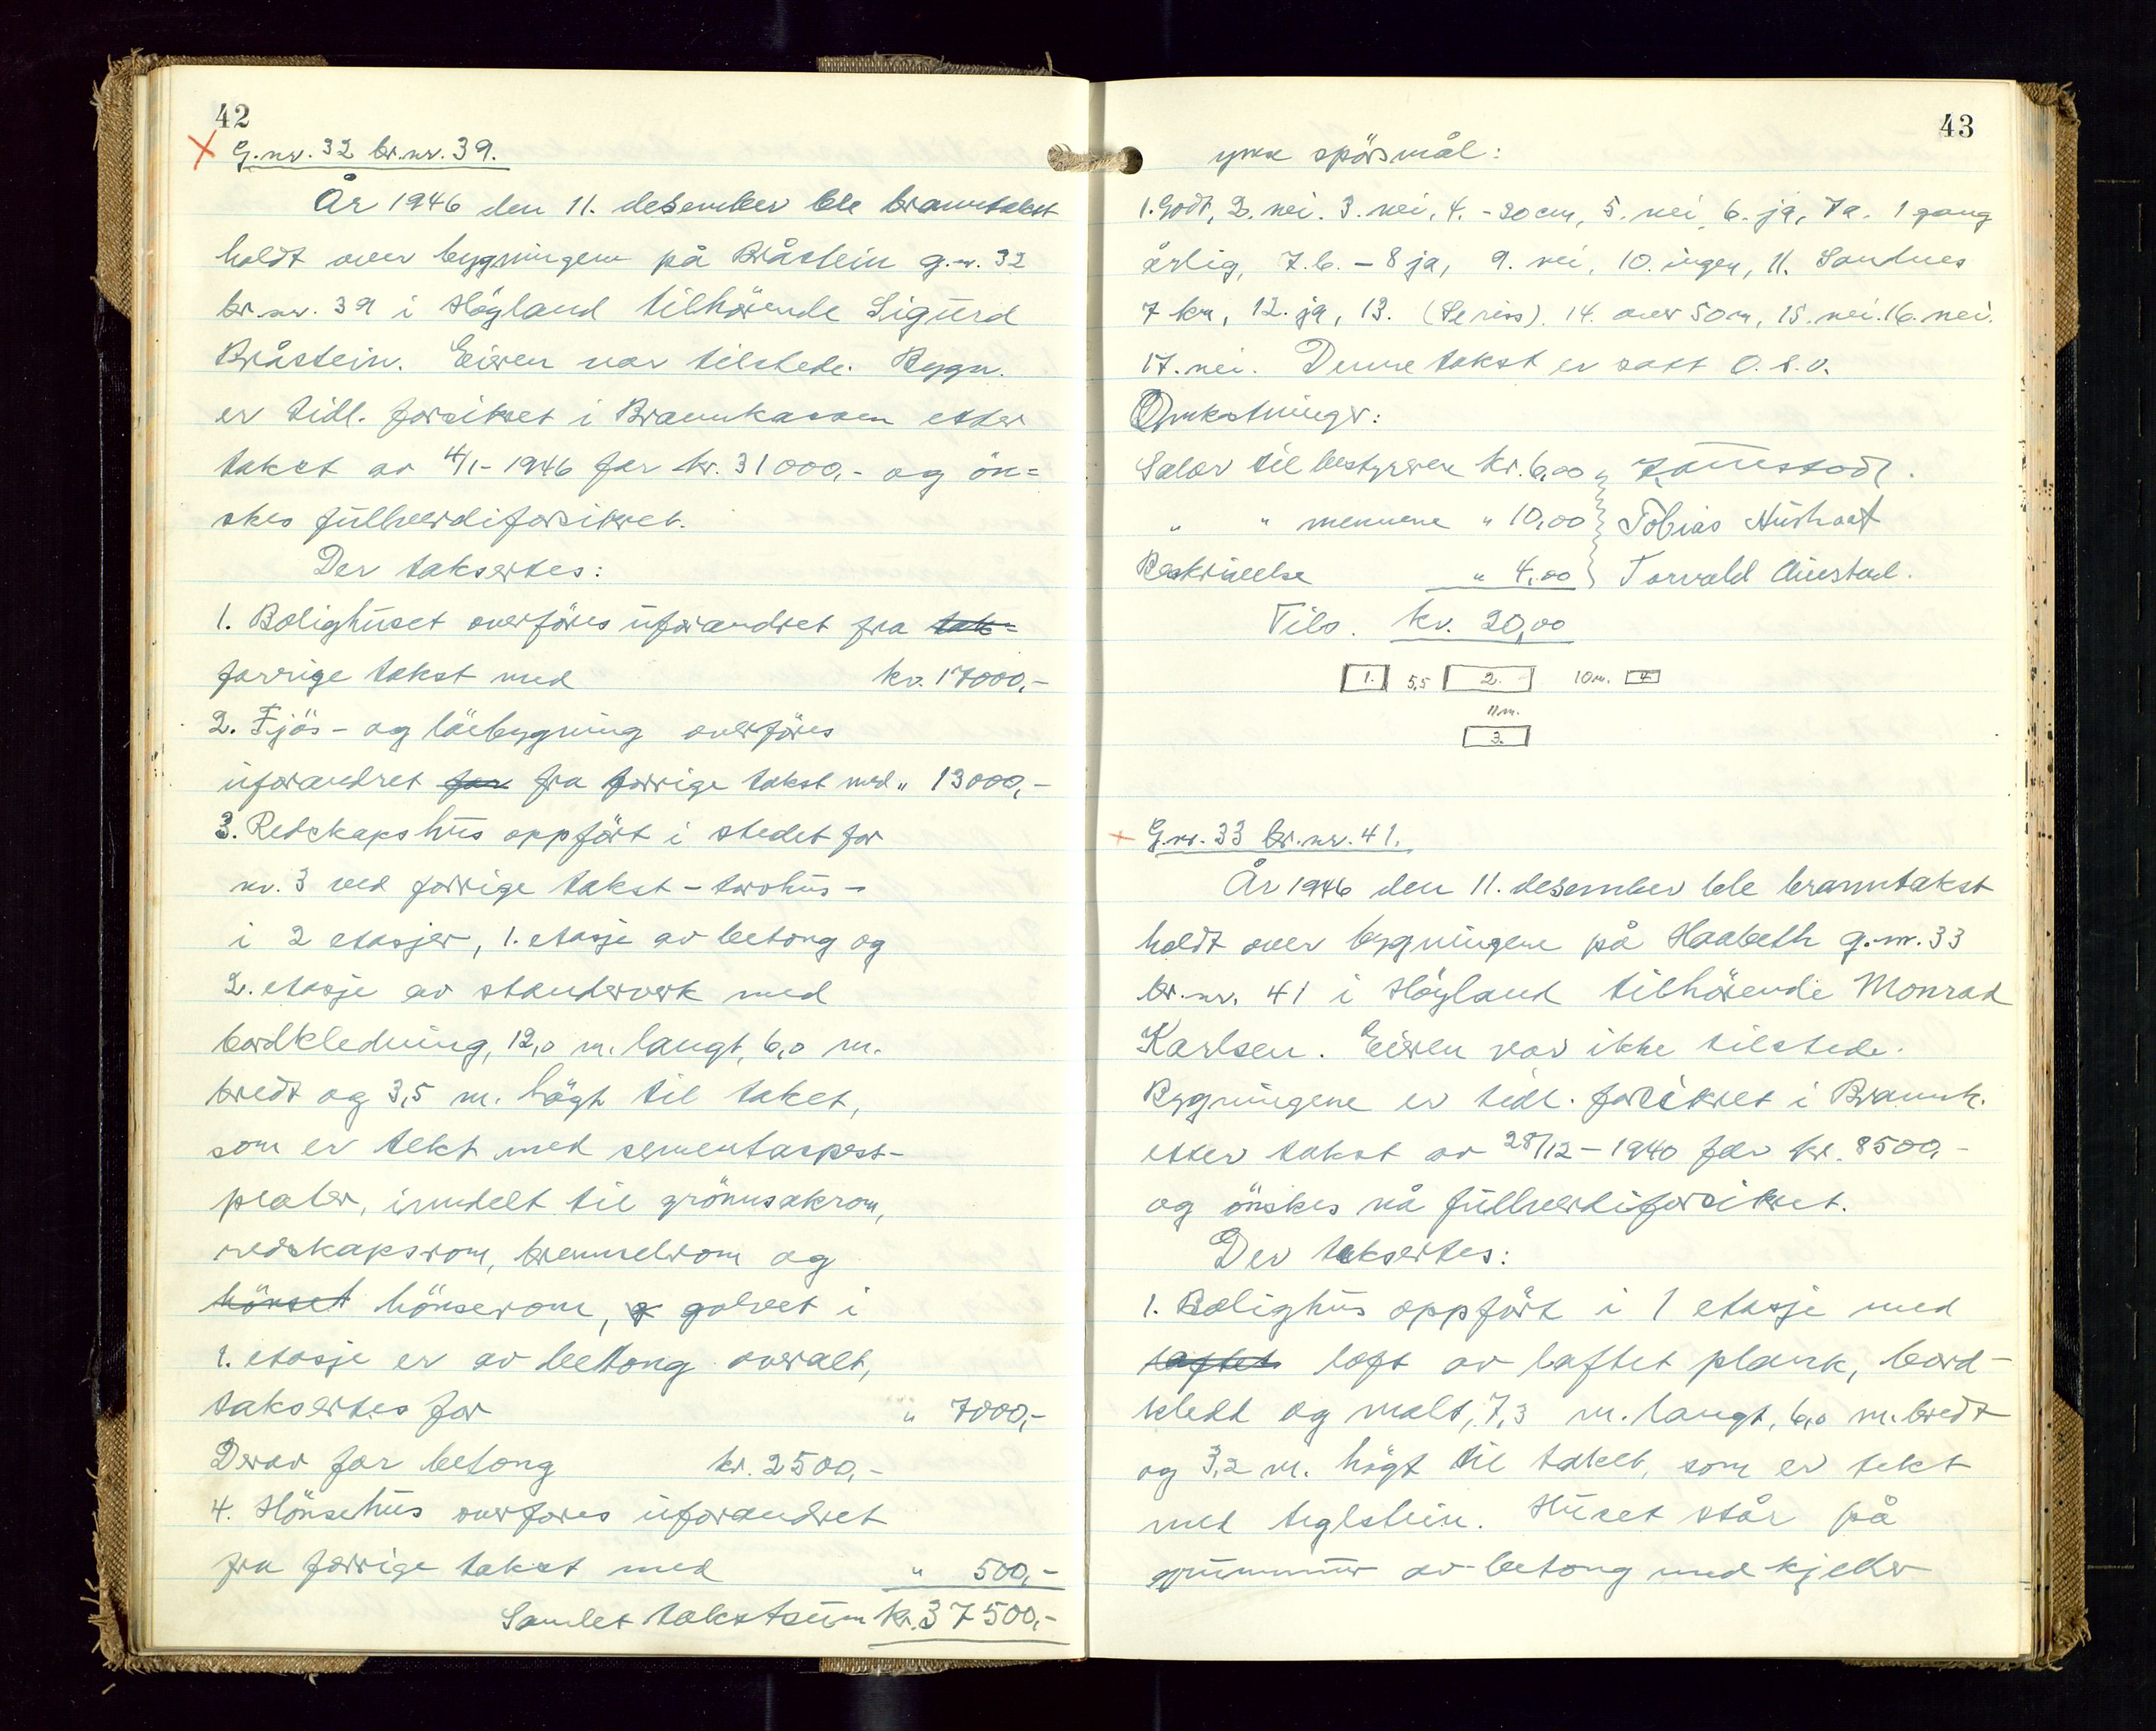 42
G.nr. 32 br.nr. 39.
År 1946 den 11. desember ble branntakst
holdt over bygningene på Bråstein g.nr. 32
br.nr. 39 i Høyland tilhørende Sigurd
Bråstein. Eieren var tilstede. Bygn.
er tidl. forsikret i Brannkassen etter
takst av 4/1-1946 for kr. 31000,- og øn=
skes fullverdiforsikret.
Der taksertes:
1. Bolighuset overføres uforandret fra tak=
forrige takst med kr. 17000,-
2. Fjøs- og løebygning overføres
uforandret for fra forrige takst med " 13000,-
3. Redskapshus oppført i stedet for
nr. 3 ved forrige takst - torvhus -
i 2 etasjer, 1. etasje av betong og
2. etasje av standerverk med
bordkledning, 12,0 m. langt, 6,0 m.
bredt og 3,5 m. høgt til taket,
som er tekt med sementaspest-
plater, inndelt til grønnsakrom,
redskapsrom, brenselrom og
hönset hønserom, og golvet i
1. etasje er av betong overalt,
taksertes for " 7000,-
Derav for betong kr. 2500,-
4. Hønsehus overføres uforandret
fra forrige takst med " 500,-
Samlet takstsum kr. 37500,-
43
spörsmål:
1. Godt, 2. nei. 3. nei, 4. - 20 cm, 5. nei, 6. ja, 7a. 1 gang
årlig, 7.b. - 8 ja, 9. nei, 10. ingen, 11. Sandnes
7 km, 12. ja, 13. (Se riss). 14. over 50 m, 15. nei. 16. nei.
17. nei. Denne takst er satt O.s.v.
Omkostninger:
Salær til bestyreren kr. 6,00
" " mennene " 10,00 Tobias
Beskrivelse " 4,00 Torvald Austad.
Tils. kr. 20,00
1. 5,5 2. 10 m. 4.
11 m.
3.
G.nr. 33 br.nr. 41.
År 1946 den 11. desember ble branntakst
holdt over bygningene på Haabeth g.nr. 33
br.nr. 41 i Høyland tilhørende Monrad
Karlsen. Eieren var ikke tilstede.
Bygningene er tidl. forsikret i Brannk.
etter takst av 28/12-1940 for kr. 8500,-
og ønskes nå fullverdiforsikret.
Der taksertes:
1. Bolighus oppført i 1 etasje med
laftet loft av laftet plank, bord-
kledt og malt, 7,3 m. langt, 6,0 m. bredt
og 3,2 m. høgt til taket, som er tekt
med teglstein. Huset står på
grunnmur av betong med kjeller